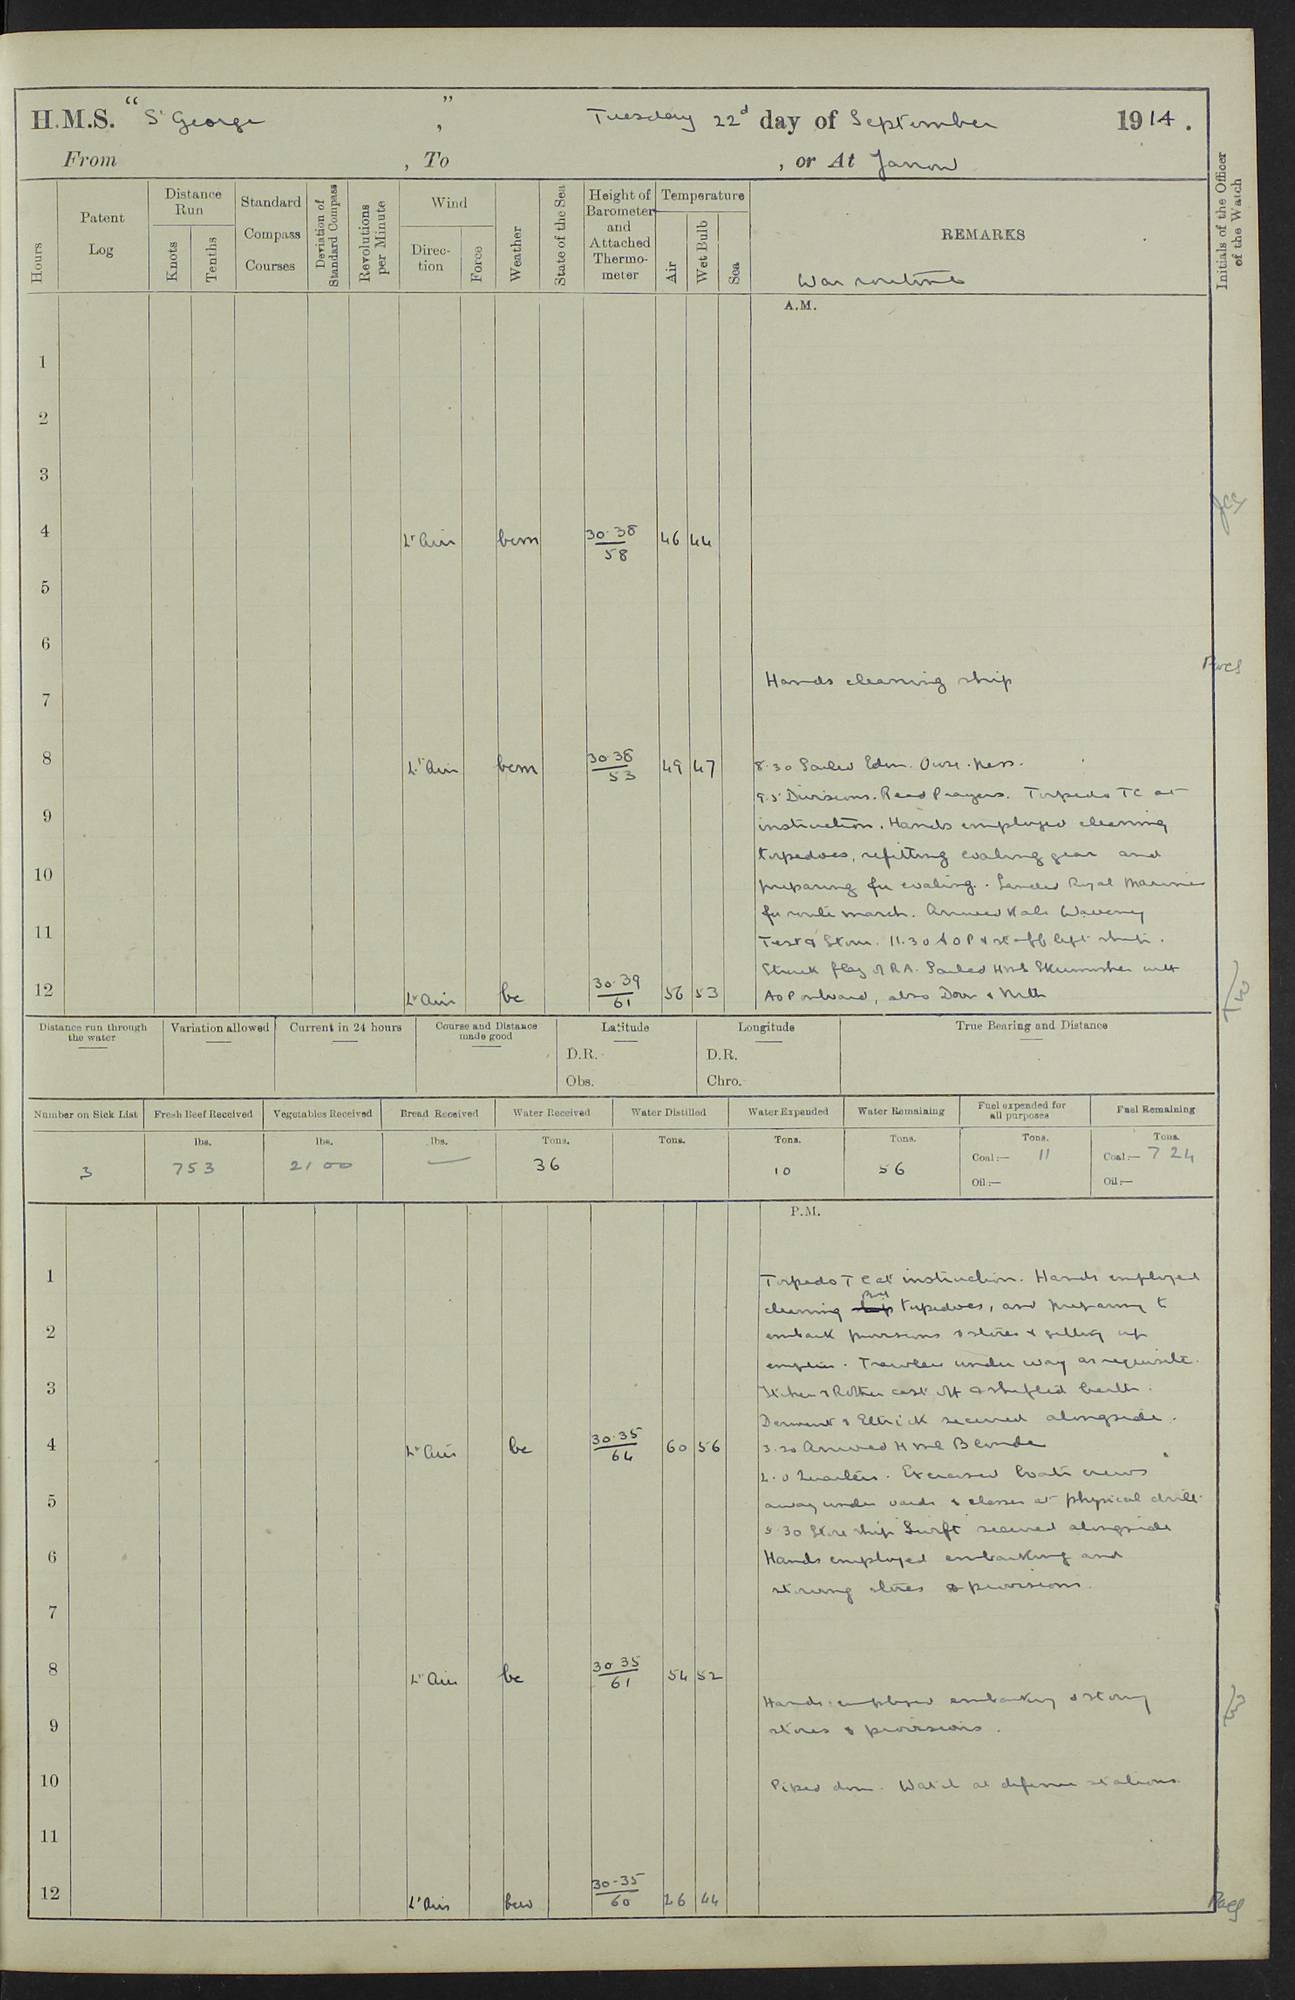 H.M.S. “ St George ” , Tuesday 22d day of September 1914.
From , To , or At Jarrow
Hours
Patent Log
Distance Run
Knots
Tenths
Standard Compass Courses
Deviation of Standard Compass
Revolutions per Minute
Wind
Direc-tion
Force
Weather
State of the Sea
Height of Barometer and Attached Thermo-meter
Temperature
Air
Wet Bulb
Sea
REMARKS
War routine
Initials of the Officer of the Watch
A.M.
1
2
3
4 Lt Airs bcm 30.38 58 46 44
5
6
Hands cleaning ship
7
8 Lt Airs bcm 30.38 53 49 47 8.30 Sailed Eden. Ouse. Ness.
9.5 Divisions. Read Prayers. Torpedo TC at
9 instruction. Hands employed cleaning
torpedoes, refitting coaling gear and
10 preparing for coaling. Landed Royal Marines
for route march. Arrived Kale Waveney
11 Test & Stour. 11.30 AOP & staff left ship.
Struck flag of RA. Sailed HMS Skirmisher with
12 Lt Airs bc 30.39 61 56 53 AOP onboard, also Doon & Nith
Distance run through the water
Variation allowed
Current in 24 hours
Course and Distance made good
Latitude
D.R.
Obs.
Longitude
D.R.
Chro.
True Bearing and Distance
Number on Sick List
Fresh Beef Received
Vegetables Received
Bread Received
Water Received
Water Distilled
Water Expended
Water Remaining
Fuel expended for all purposes
Fuel Remaining
lbs. lbs. lbs. Tons. Tons. Tons. Tons. Tons. Tons.
3 753 2100 — 36 10 56 Coal:— 11 Coal:— 724
Oil:— Oil:—
P.M.
1 Torpedo T C at instruction. Hands employed
cleaning torpedoes, and preparing to
2 embark provisions & stores & getting up
empties. Trawlers under way as requisite.
3 Itchen & Rother cast off & shifted berth.
Derwent & Ettrick secured alongside.
4 Lt Airs bc 30.35 64 60 56 3.20 Arrived HMS Blonde
Quarters. Exercised boats crews
5 away under oars & classes at physical drill
5.30 Store ship "Swift" secured alongside
6 Hands employed embarking and
stowing stores & provisions.
7
8 Lt Airs bc 30.35 61 54 52
Hands employed embarking & stowing
9 stores & provisions.
10 Piped down. Watch at defence stations.
11
12 Lt Airs bcw 30.35 60 46 44